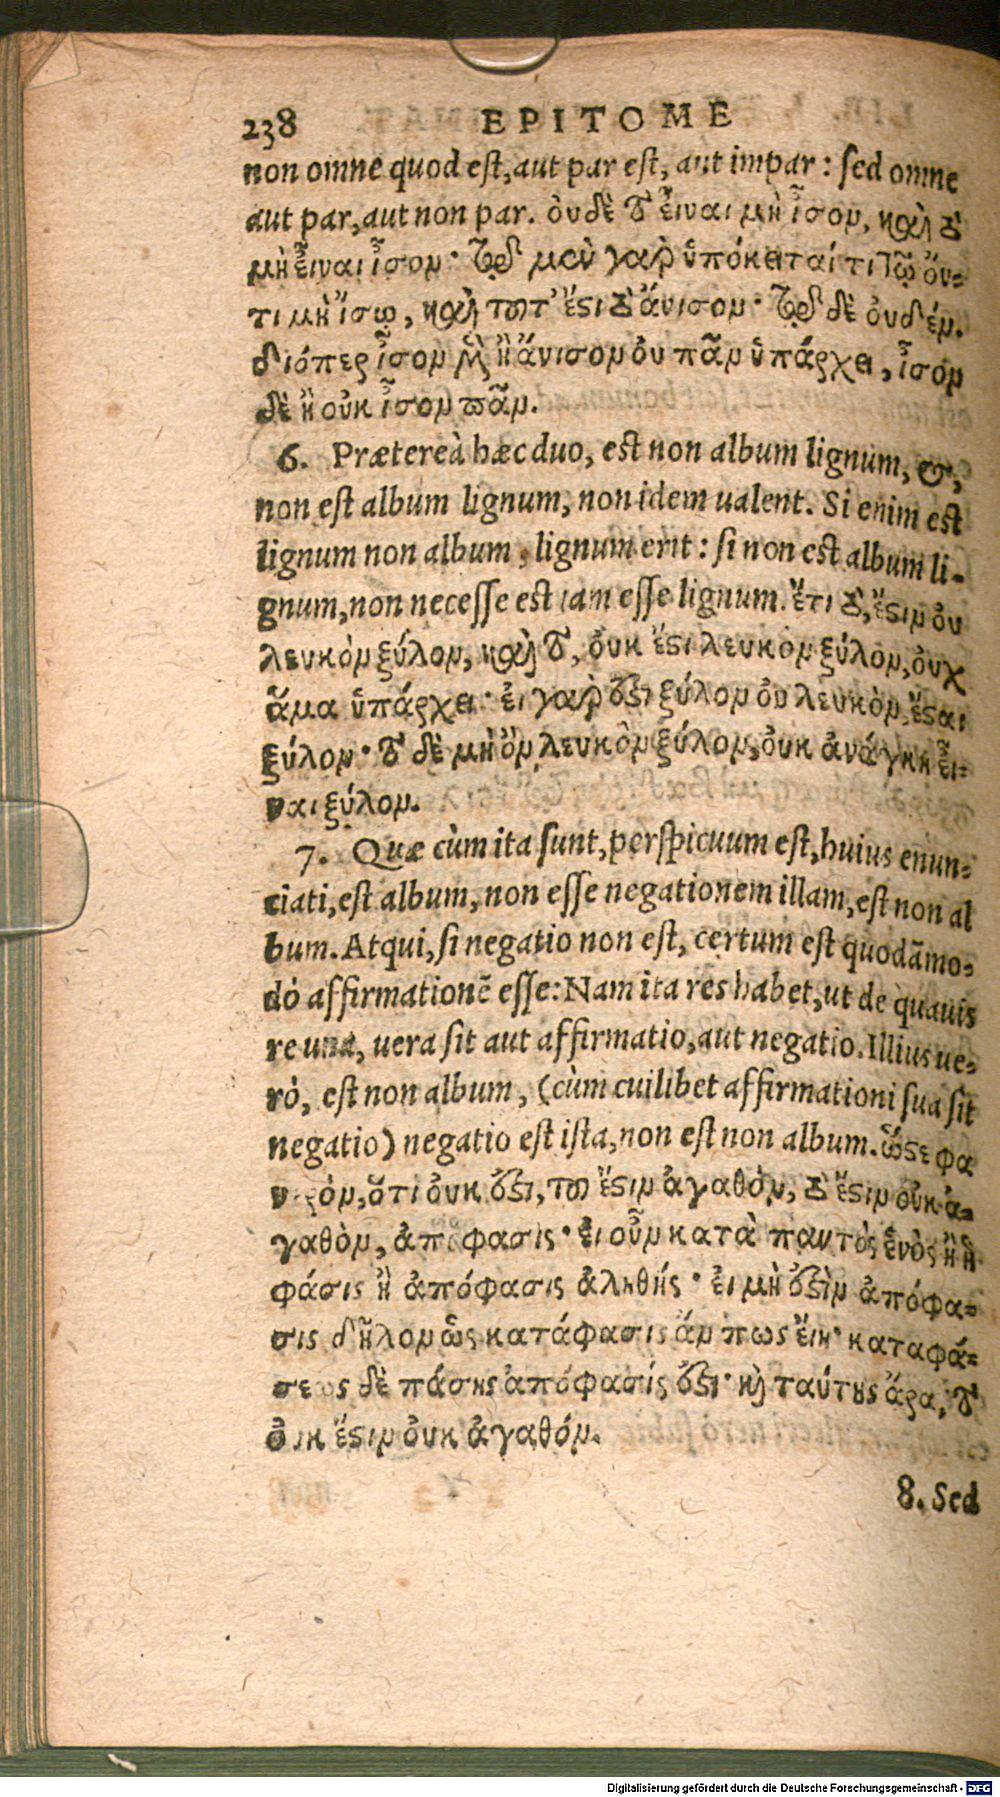 238 EPITOME
non omne quod est, aut par est, aut impar: sed omne
aut par, aut non par. οὐδὲ τὸ εἶναι μὴ ἴσον, καὶ τὸ
μὴ εἶναι ἴσον· τῷ μὲν γὰρ ὑπόκειταί τι τῷ ὄν-
τι μὴ ἴσῳ, καὶ τοῦτ' ἔστι τὸ ἄνισον· τῷ δὲ οὐδέν.
διόπερ ἴσον μὲν ἢ ἄνισον οὐ πᾶν ὑπάρχει, ἴσον
δὲ ἢ οὐκ ἴσον πᾶν.
6. Prætereà hæc duo, est non album lignum, &,
non est album lignum, non idem ualent. Si enim est
lignum non album, lignum erit: si non est album li-
gnum, non necesse est iam esse lignum. ἔτι τὸ, ἔστιν οὐ
λευκὸν ξύλον, καὶ τὸ, οὐκ ἔστι λευκὸν ξύλον, οὐχ
ἅμα ὑπάρχει· εἰ γὰρ ἐστι ξύλον οὐ λευκὸν, ἔσται
ξύλον· τὸ δὲ μὴ ὂν λευκὸν ξύλον, οὐκ ἀνάγκη εἶ-
ναι ξύλον.
7. Quæ cùm ita sunt, perspicuum est, huius enun-
ciati, est album, non esse negationem illam, est non al
bum. Atqui, si negatio non est, certum est quodãmo-
dò affirmationẽ esse: Nam ita res habet, ut de quauis
re una, uera sit aut affirmatio, aut negatio. Illius ue-
rò, est non album, (cùm cuilibet affirmationi sua sit
negatio) negatio est ista, non est non album. ὥστε φα
νερὸν, ὅτι οὐκ ἐστι, τοῦ ἔστιν ἀγαθὸν, τὸ ἔστιν οὐκ ἀ-
γαθὸν, ἀπόφασις· εἰ οὖν κατὰ παντὸς ἑνὸς ἢ ἡ
φάσις ἢ ἀπόφασις ἀληθής· εἰ μὴ ἐστὶν ἀπόφα-
σις δῆλον ὡς κατάφασις ἄν πως εἴη· καταφά-
σεως δὲ πάσης ἀπόφασίς ἐστι· καὶ ταύτης ἄρα, τὸ
οὐκ ἔστιν οὐκ ἀγαθόν.
8. Sed
Digitalisierung gefördert durch die Deutsche Forschungsgemeinschaft - DFG